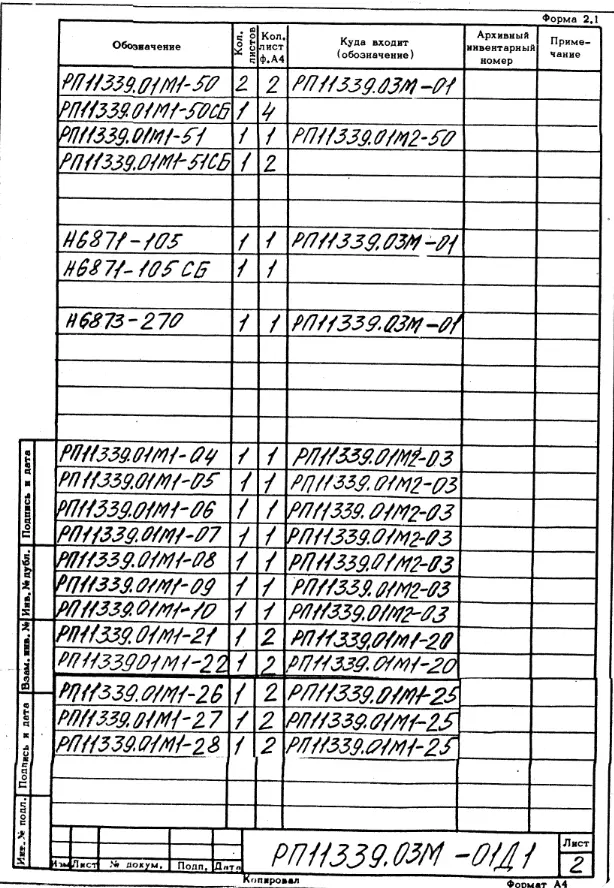 Форма 2.1
Обозначение Кол. листов Кол. лист ф.А4 Куда входит (обозначение) Архивный инвентарный номер Примечание
РП11339.01М1-50 2 2 РП11339.03М-01
РП11339.01М1-50СБ 1 4
РП11339.01М1-51 1 1 РП11339.01М2-50
РП11339.01М1-51СБ 1 2
Н6871-105 1 1 РП11339.03М-01
Н6871-105СБ 1 1
Н6873-270 1 1 РП11339.03М-01
РП11339.01М1-04 1 1 РП11339.01М2-03
РП11339.01М1-05 1 1 РП11339.01М2-03
РП11339.01М1-06 1 1 РП11339.01М2-03
РП11339.01М1-07 1 1 РП11339.01М2-03
РП11339.01М1-08 1 1 РП11339.01М2-03
РП11339.01М1-09 1 1 РП11339.01М2-03
РП11339.01М1-10 1 1 РП11339.01М2-03
РП11339.01М1-21 1 2 РП11339.01М1-20
РП1133901М1-22 1 2 РП11339.01М1-20
РП11339.01М1-26 1 2 РП11339.01М1-25
РП11339.01М1-27 1 2 РП11339.01М1-25
РП11339.01М1-28 1 2 РП11339.01М1-25
Подпись и дата
Инв.№ дубл.
Взам. инв. №
Подпись и дата
Инв.№ подл.
Изм Лист № докум. Подп. Дата
РП11339.03М-01Д1
Лист
2
Копировал Формат А4